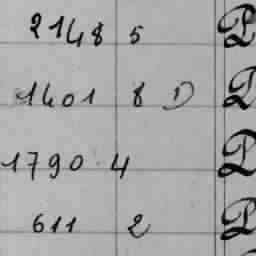 2148 5 P
1401 8 D D
1790 4 D
611 2 P